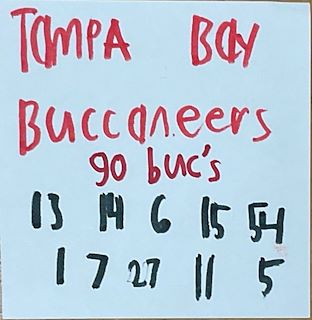 Tampa Bay
Buccaneers
go buc's
13 14 6 15 54
1 7 27 11 5